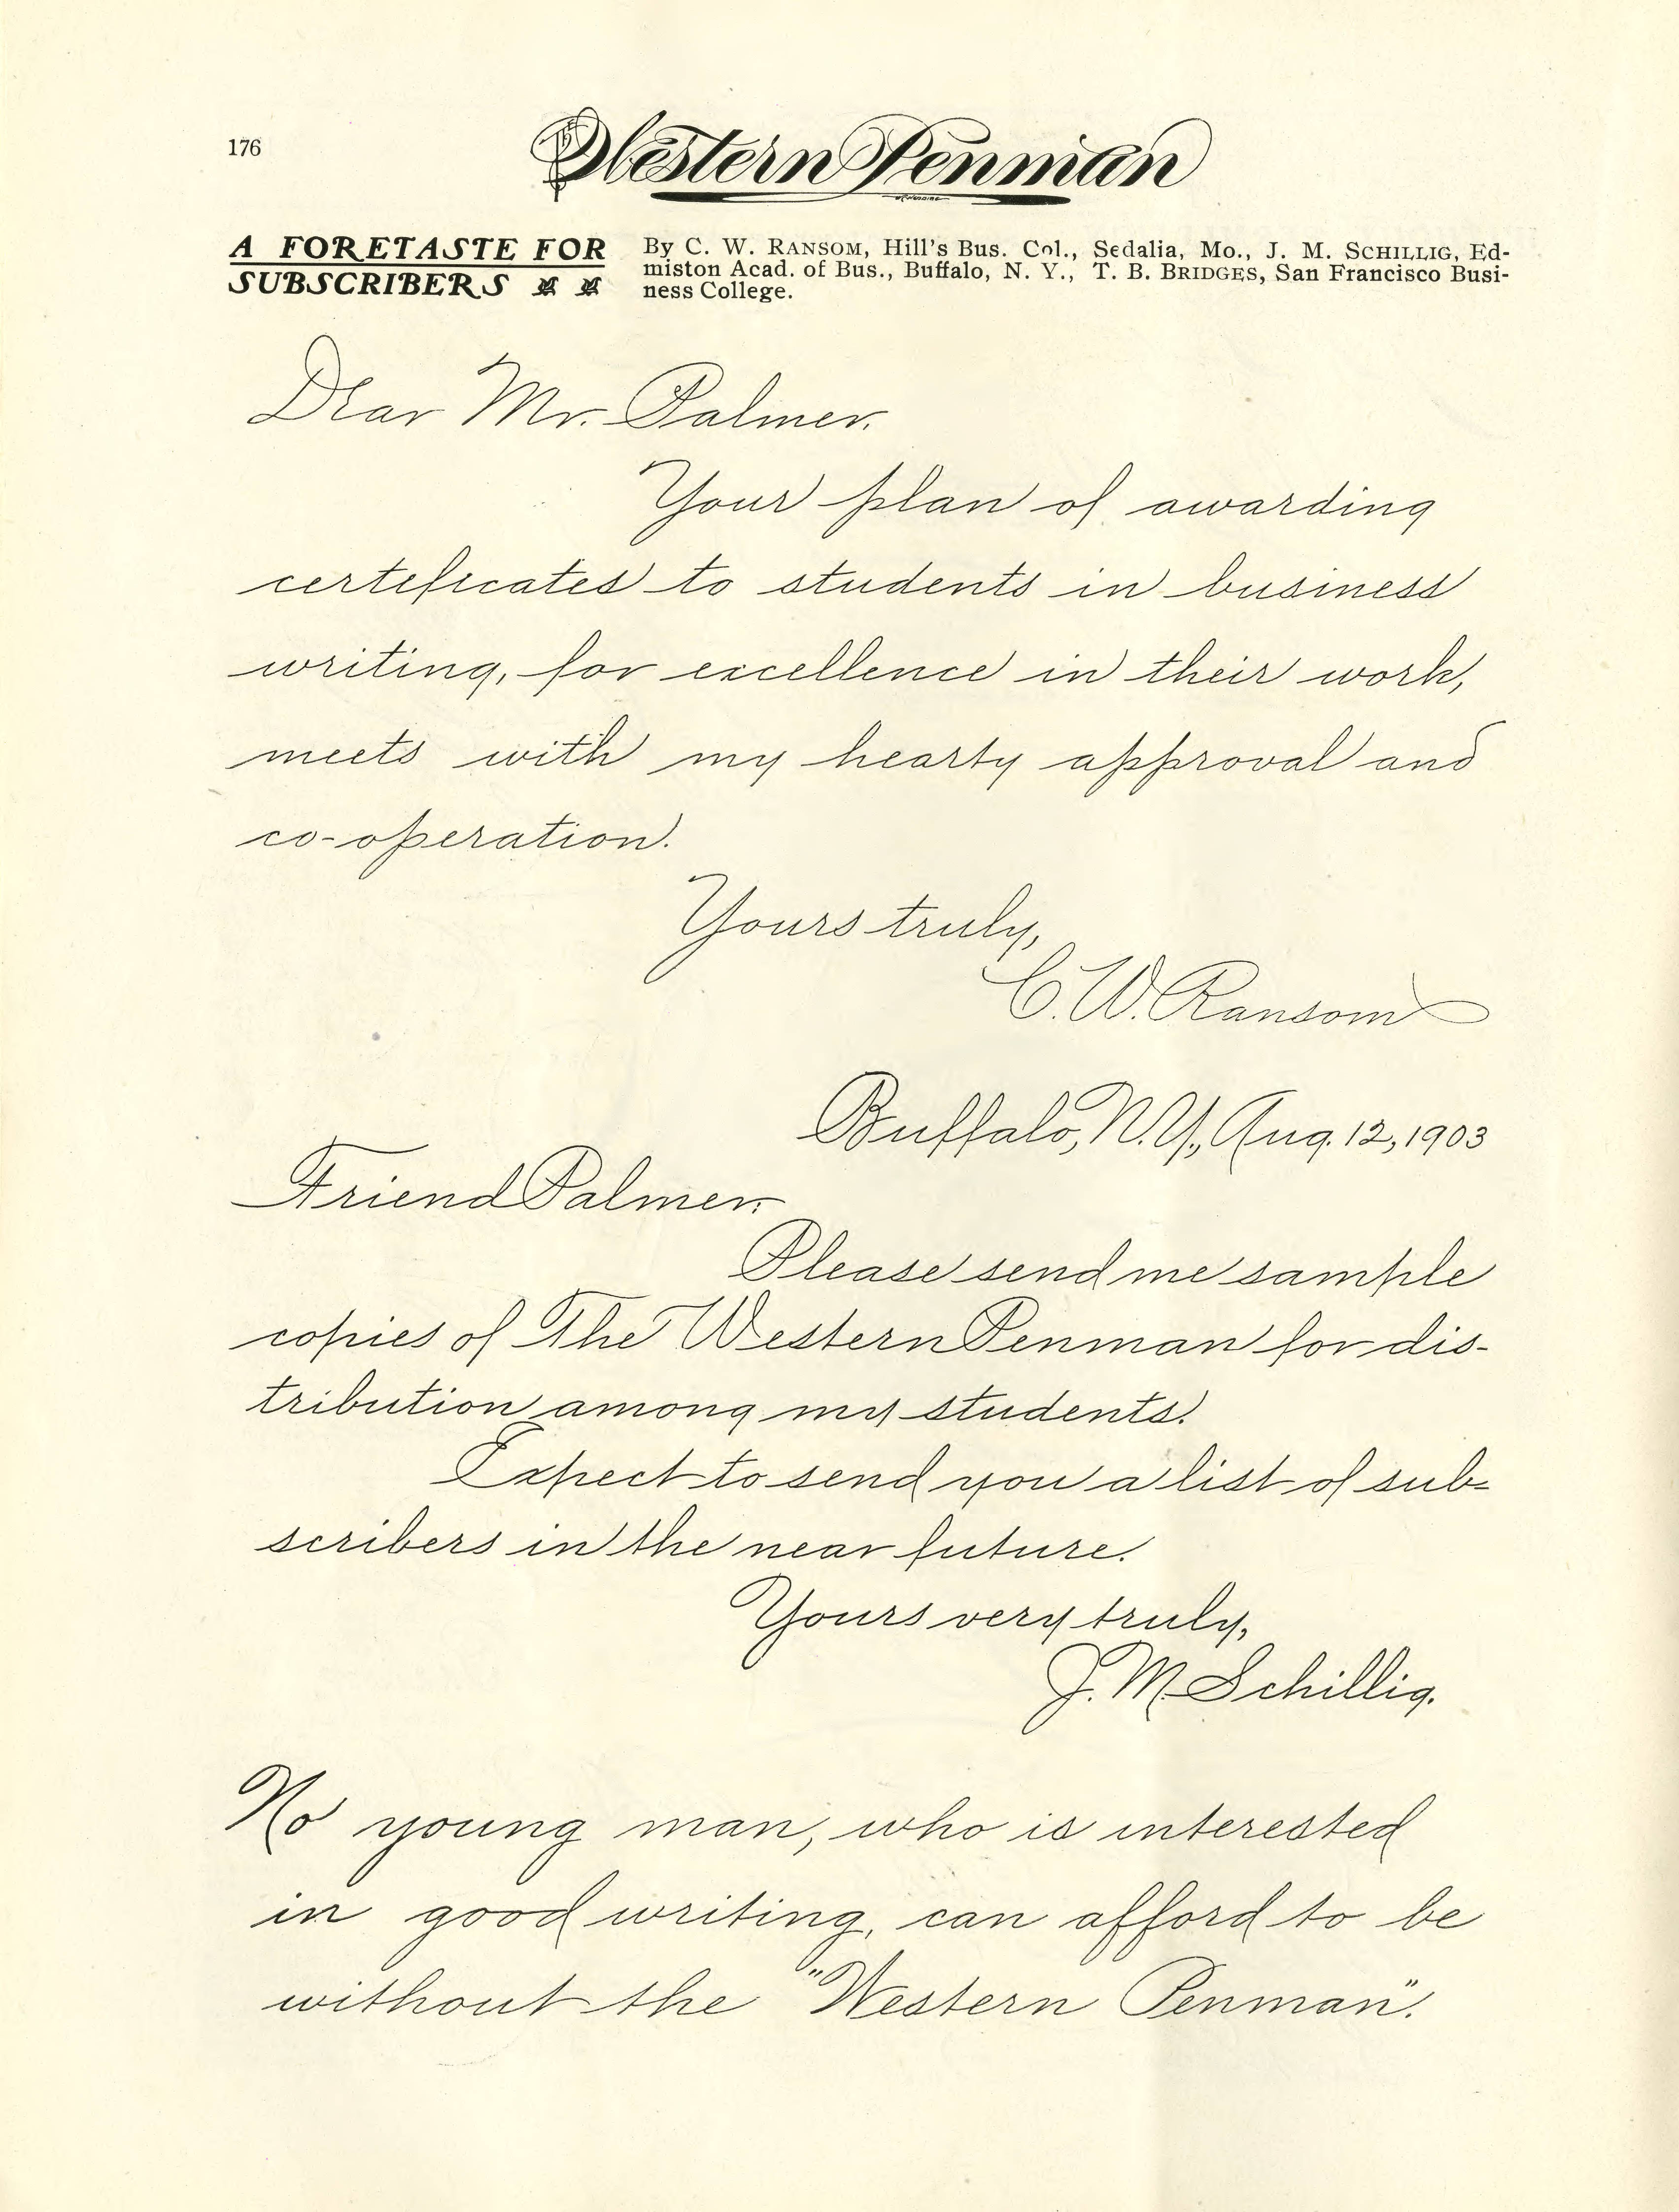 176
Western Penman
A FORETASTE FOR
SUBSCRIBERS
By C. W. RANSOM, Hill's Bus. Col., Sedalia, Mo., J. M. SCHILLIG, Ed-
miston Acad. of Bus., Buffalo, N. Y., T. B. BRIDGES, San Francisco Busi-
ness College.
Dear Mr. Palmer.
Your plan of awarding
certificates to students in business
writing, for excellence in their work,
meets with my hearty approval and
co-operation.
Yours truly,
C. W. Ransom
Buffalo, N. Y., Aug. 12, 1903
Friend Palmer:
Please send me sample
copies of The Western Penman for dis-
tribution among my students.
Expect to send you a list of sub-
scribers in the near future.
Yours very truly,
J. M. Schillig.
No young man, who is interested
in good writing, can afford to be
without the "Western Penman".